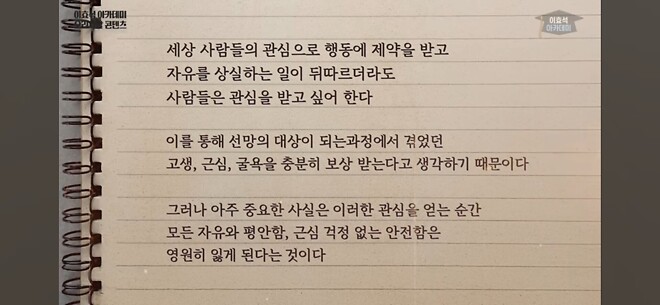 이효석 아카데미
오리지널 콘텐츠
이효석
아카데미
세상 사람들의 관심으로 행동에 제약을 받고
자유를 상실하는 일이 뒤따르더라도
사람들은 관심을 받고 싶어 한다
이를 통해 선망의 대상이 되는과정에서 겪었던
고생, 근심, 굴욕을 충분히 보상 받는다고 생각하기 때문이다
그러나 아주 중요한 사실은 이러한 관심을 얻는 순간
모든 자유와 평안함, 근심 걱정 없는 안전함은
영원히 잃게 된다는 것이다